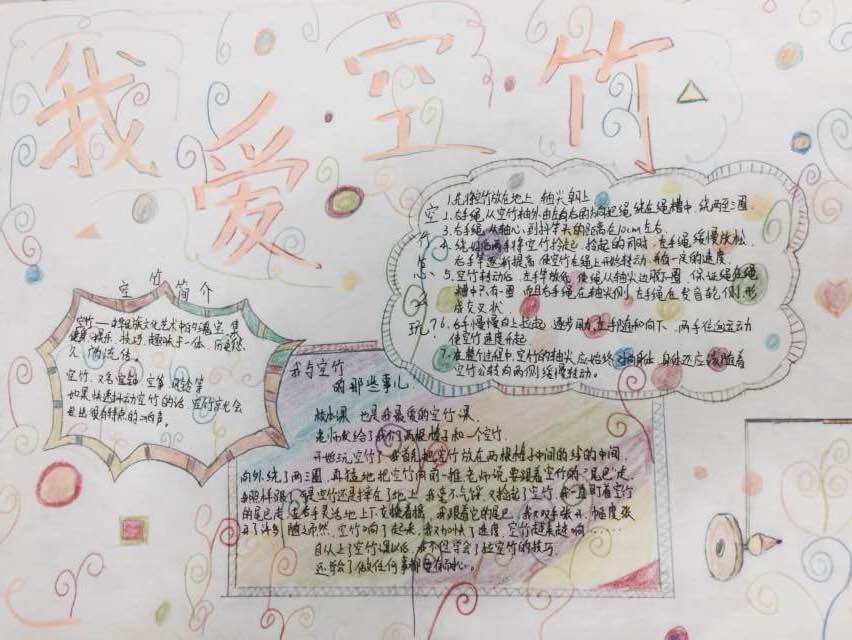 我爱空竹
空竹简介
空竹——中华民族文化艺术中的瑰宝 集
健身、娱乐、技巧、趣味于一体、历史悠
久、广为流传。
空竹、又名
如果快速抖动空竹的话 空竹就会
发出很有特点的响声。
空竹怎么玩？
1.先将空竹放在地上 轴尖朝上
2.右手绳,从空竹轴外由左向右的方向把绳绕在绳槽中,绕两至三圈
3.右手绳,从轴心,到抖竿头的距离在10cm左右
4.绕好后两手将空竹拎起,拎起的同时,左手绳缓慢放松,
右手竿逐渐提高,使空竹在绳上开始转动,有一定的速度。
5.空竹转动后,左手放低,使绳从轴尖边脱下圈,保证绳在绳
槽中只有一圈 而且右手绳在轴尖侧,左手绳在发音轮侧,形
成交叉状
6.右手慢慢向上拉起,逐步用力,左手随和向下,两手往返运动
使空竹速度升起
7.在整个过程中,空竹的轴尖应始终对向身体 身体还应该随着
空竹公转向两侧缓慢转动。
我与空竹
的那些事儿
校本课 也是我最爱的空竹课
老师发给了我们两根棍子和一个空竹。
开始玩空竹了 我首先把空竹放在两根棍子中间的线的中间,
向外绕了两三圈,再猛地把空竹向前一推 老师说 要跟着空竹的“尾巴”走,
我照样跟了 可是空竹还是摔在了地上 我毫不气馁 又拾起了空竹,我一直盯着空竹
的尾巴走 左右手灵活地上下交换着棍,我跟着它的尾巴,我又双手张开,幅度张
开了许多 随之而然,空竹响了起来,我又加快了速度,空竹越来越响……
自从上了空竹课以后 我不但学会了拉空竹的技巧,
还学会了做任何事都要有耐心。